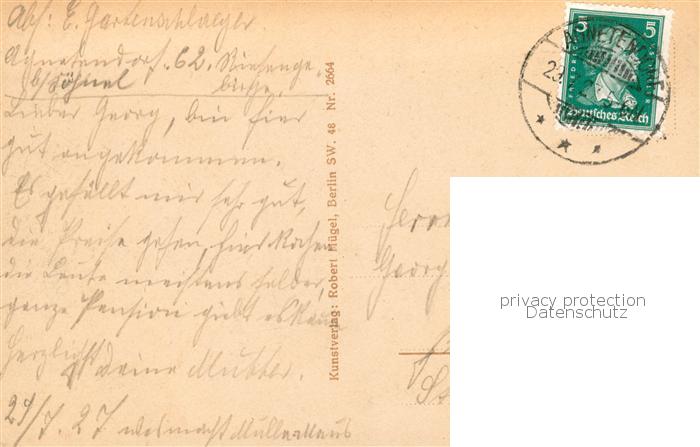 Abs: E. Gartenschlaeger
Agnetendorf. 62. Riesenge-
b/Söhnel birge.
Lieber Georg, bin hier
gut angekommen.
Es gefällt mir sehr gut,
die Preise gehen, hier Kochen
die Leute meistens selber,
ganze Pension giebt es kaum
Herzlichst
Deine Mutter.
29/7. 27 was macht
Kunstverlag: Robert Hügel, Berlin SW. 48 Nr. 2664
5 5
AGNETENDORF
Deutsches Reich
Herrn
Georg
privacy protection
Datenschutz